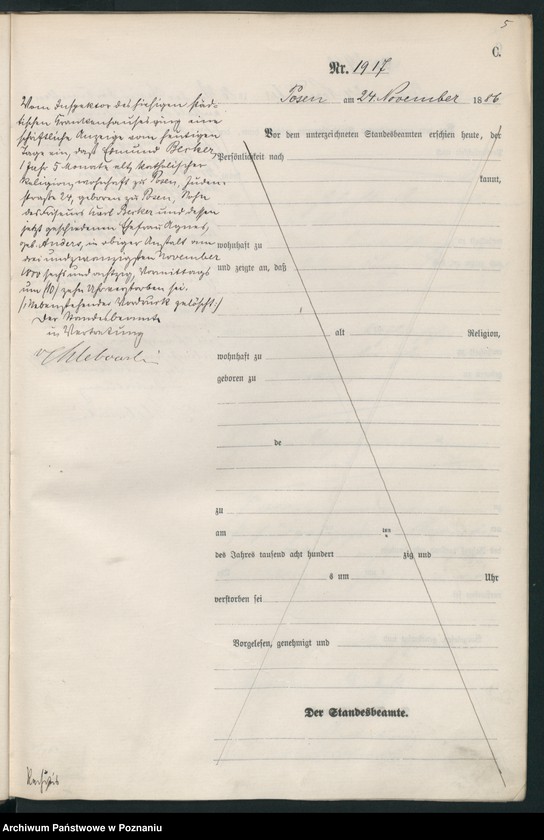 5
C.
Nr. 1917
Posen am 24 November 1886
Vom Inspektor des hiesigen städ-
tischen Krankenhauses ging eine
schriftliche Anzeige vom heutigen
Tage ein, daß Edmund Berker,
1 Jahr 5 Monate alt, katholischer
Religion, wohnhaft zu Posen, Juden-
straße 24, geboren zu Posen, Sohn
des Friseurs Karl Berker und dessen
jetzt geschiedenen Ehefrau Agnes,
geb. Anders, in obiger Anstalt am
drei und zwanzigsten November
1800 sechs und achtzig, Vormittags
um (10) zehn Uhr verstorben sei.
(Nebenstehender Vordruck gelöscht.)
Der Standesbeamte
in Vertretung
Vor dem unterzeichneten Standesbeamten erschien heute, der
Persönlichkeit nach
kannt,
wohnhaft zu
und zeigte an, daß
alt Religion,
wohnhaft zu
geboren zu
de
zu
am ten
des Jahres tausend acht hundert zig und
s um Uhr
verstorben sei
Vorgelesen, genehmigt und
Der Standesbeamte.
Archiwum Państwowe w Poznaniu